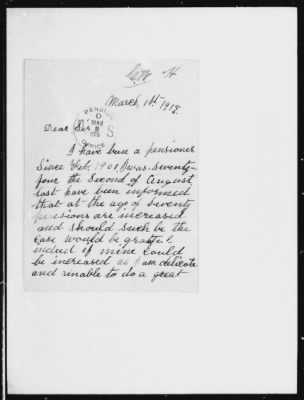 March, 1st, 1913.
PENSION
MAR
OFFICE
Dear Sir
I have been a pensioner
Since Feb. 1901, I was seventy-
four the second of August
last have been informed
that at the age of seventy
pensions are increased
and should such be the
case would be grateful
indeed if mine could
be increased as I am delicate
and unable to do a great